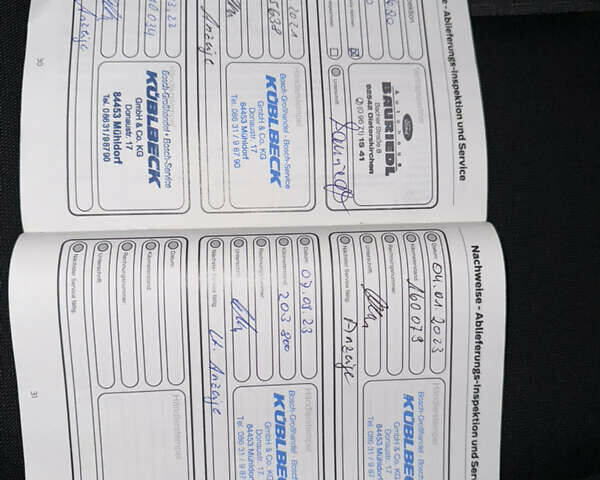 - Ablieferungs-Inspektion und Service
Autohaus
BAURIEDL
Bacher Straße 8
92542 Dieterskirchen
Unterschrift
2021
Händlerstempel
Bosch-Großhandel • Bosch-Service
KÜBLBECK
GmbH & Co. KG
Donaustr. 17
84453 Mühldorf
Tel. 086 31 / 9 87 90
Anzeige
Bosch-Großhandel • Bosch-Service
KÜBLBECK
GmbH & Co. KG
Donaustr. 17
84453 Mühldorf
Tel. 086 31 / 9 87 90
Anzeige
30
Nachweise - Ablieferungs-Inspektion und Ser
Datum: 04.01.2023
Kilometerstand: 160 079
Rechnungsnummer:
Unterschrift
Nächster Service fällig: Anzeige
Händlerstempel
Bosch-Großhandel • Bosch-Se
KÜBLBE
GmbH & Co. KG
Donaustr. 17
84453 Mühldorf
Tel. 086 31 / 9 87
Datum: 07.09.23
Kilometerstand: 203 800
Rechnungsnummer:
Unterschrift
Nächster Service fällig: Lt. Anzeige
Händlerstempel
Bosch-Großhandel • Bosch-Se
KÜBLBE
GmbH & Co. KG
Donaustr. 17
84453 Mühldorf
Tel. 086 31 / 9 87
Datum:
Kilometerstand:
Rechnungsnummer:
Unterschrift
Nächster Service fällig:
Händlerstempel
31